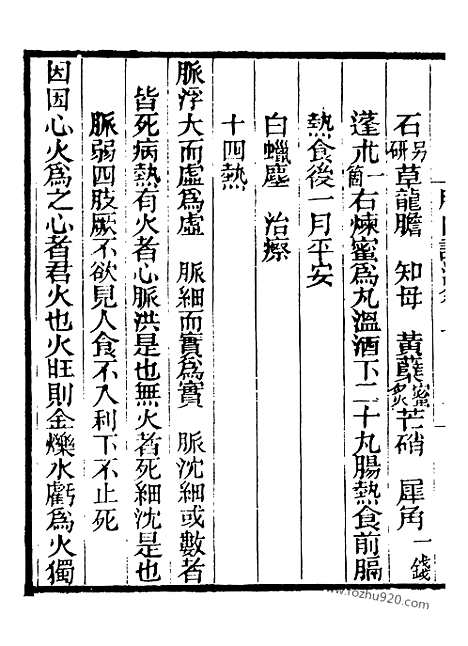 石另研草龍膽　知母　黃蘗蜜炙芒硝　犀角一錢
蓬朮一箇右煉蜜爲丸溫酒下二十丸腸熱食前膈
熱食後一月平安
白蠟塵　治瘵
十四熱
脈浮大而虛爲虛　脈細而實爲實　脈沈細或數者
皆死病熱有火者心脈洪是也無火者死細沈是也
脈弱四肢厥不欲見人食不入利下不止死
因因心火爲之心者君火也火旺則金爍水虧爲火獨
www.Yozhu920.com